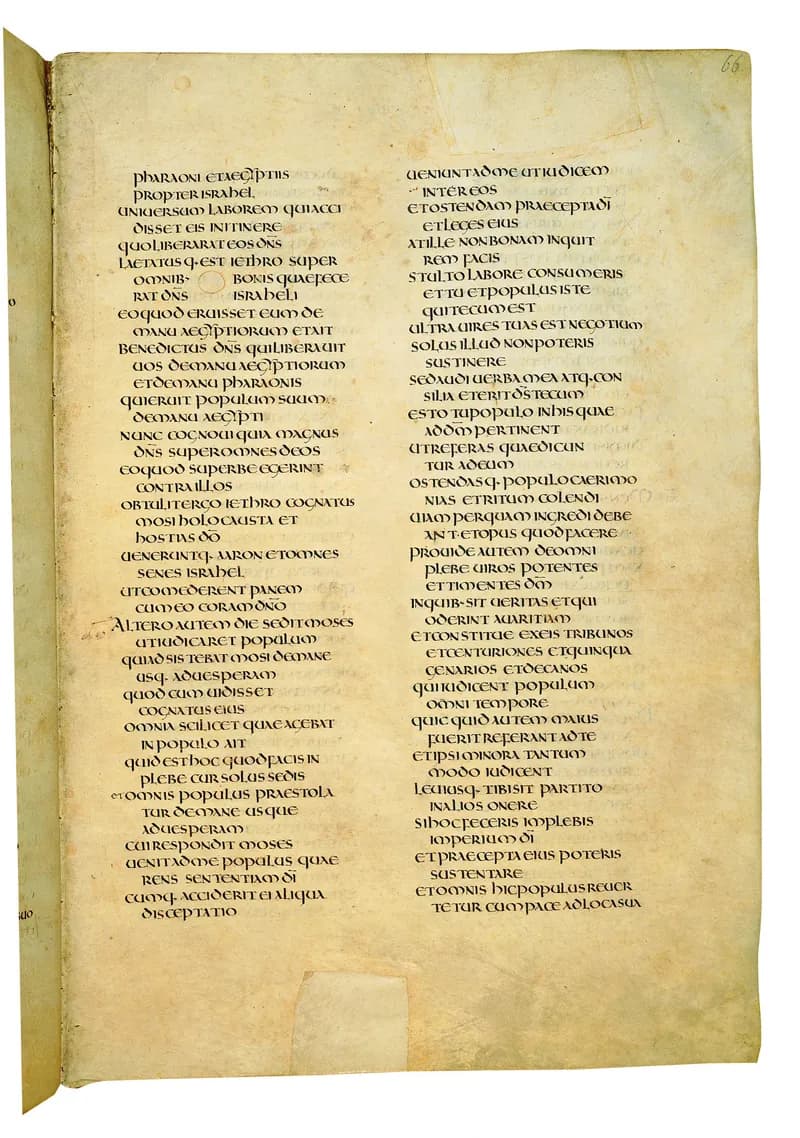 66
PHARAONI ETAEGYPTIIS
PROPTER ISRAHEL
UNIUERSUM LABOREM QUI ACCI
DISSET EIS IN ITINERE
QUO LIBERARAT EOS DNS
LAETATUSQ· EST IETHRO SUPER
OMNIB· BONIS QUAE FECE
RAT DNS ISRAHELI
EO QUOD ERUISSET EUM DE
MANU AEGYPTIORUM ET AIT
BENEDICTUS DNS QUI LIBERAUIT
UOS DE MANU AEGYPTIORUM
ET DE MANU PHARAONIS
QUI ERUIT POPULUM SUUM
DE MANU AEGYPTI
NUNC COGNOUI QUIA MAGNUS
DNS SUPER OMNES DEOS
EO QUOD SUPERBE EGERINT
CONTRA ILLOS
OBTULIT ERGO IETHRO COGNATUS
MOSI HOLOCAUSTA ET
HOSTIAS DO
UENERUNTQ· AARON ET OMNES
SENES ISRAHEL
UT COMEDERENT PANEM
CUM EO CORAM DNO
ALTERO AUTEM DIE SEDIT MOSES
UT IUDICARET POPULUM
QUI ADSISTEBAT MOSI DE MANE
USQ· AD UESPERAM
QUOD CUM UIDISSET
COGNATUS EIUS
OMNIA SCILICET QUAE AGEBAT
IN POPULO AIT
QUID EST HOC QUOD FACIS IN
PLEBE CUR SOLUS SEDIS
ET OMNIS POPULUS PRAESTOLA
TUR DE MANE USQUE
AD UESPERAM
CUI RESPONDIT MOSES
UENIT AD ME POPULUS QUAE
RENS SENTENTIAM DI
CUMQ· ACCIDERIT EI ALIQUA
DISCEPTATIO
UENIUNT AD ME UT IUDICEM
INTER EOS
ET OSTENDAM PRAECEPTA DI
ET LEGES EIUS
AT ILLE NON BONAM INQUIT
REM FACIS
STULTO LABORE CONSUMERIS
ET TU ET POPULUS ISTE
QUI TECUM EST
ULTRA UIRES TUAS EST NEGOTIUM
SOLUS ILLUD NON POTERIS
SUSTINERE
SED AUDI UERBA MEA ATQ· CON
SILIA ET ERIT DS TECUM
ESTO TU POPULO IN HIS QUAE
AD DM PERTINENT
UT REFERAS QUAE DICUN
TUR AD EUM
OSTENDASQ· POPULO CAERIMO
NIAS ET RITUM COLENDI
UIAM PER QUAM INGREDI DEBE
ANT ET OPUS QUOD FACERE
PROUIDE AUTEM DE OMNI
PLEBE UIROS POTENTES
ET TIMENTES DM
IN QUIB· SIT UERITAS ET QUI
ODERINT AUARITIAM
ET CONSTITUE EX EIS TRIBUNOS
ET CENTURIONES ET QUINQUA
GENARIOS ET DECANOS
QUI IUDICENT POPULUM
OMNI TEMPORE
QUICQUID AUTEM MAIUS
FUERIT REFERANT AD TE
ET IPSI MINORA TANTUM
MODO IUDICENT
LEUIUSQ· TIBI SIT PARTITO
IN ALIOS ONERE
SI HOC FECERIS IMPLEBIS
IMPERIUM DI
ET PRAECEPTA EIUS POTERIS
SUSTENTARE
ET OMNIS HIC POPULUS REUER
TETUR CUM PACE AD LOCA SUA